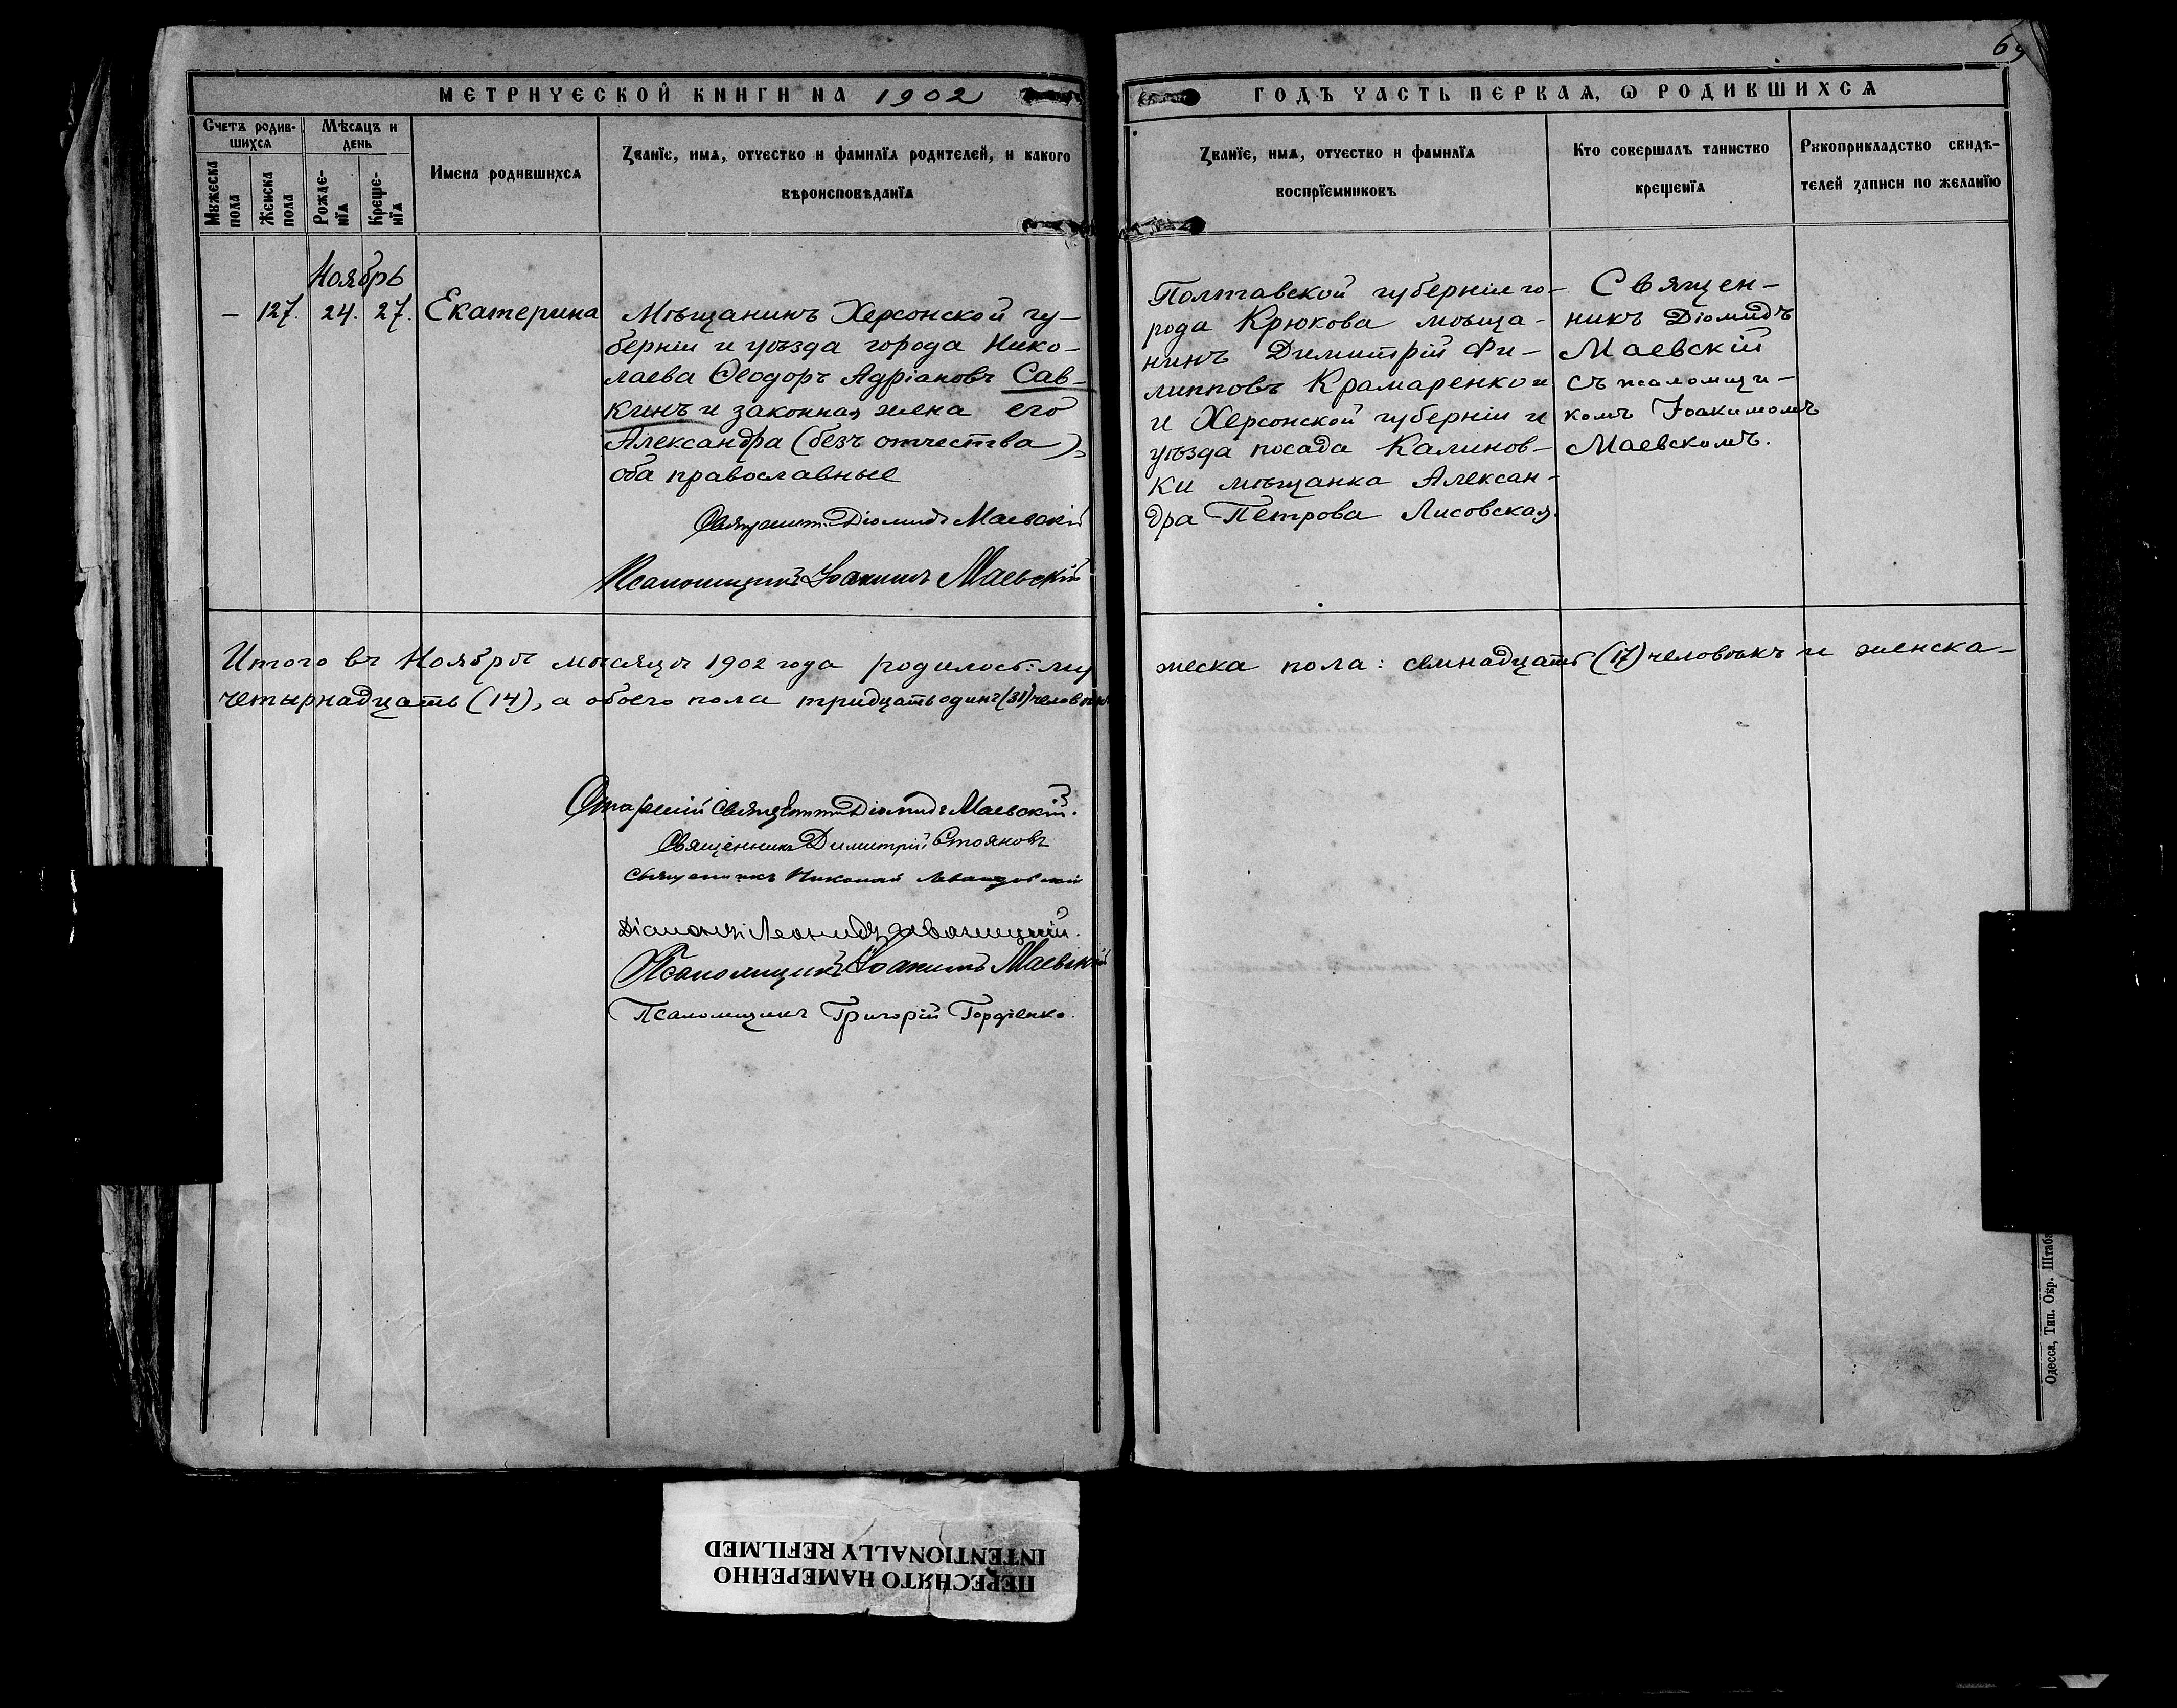 69
МЕТРИЧЕСКОЙ КНИГИ НА 1902
ГОДЪ ЧАСТЬ ПЕРВАЯ, Ѡ РОДИВШИХСѦ
Счетъ родив-
шихсѧ
Мѣсѧцъ и
день
Мужеска
пола
Женска
пола
Рожде-
нїѧ
Креще-
нїѧ
Имена родившихсѧ
Званїе, имѧ, отчество и фамилїѧ родителей, и какого
вѣроисповѣданїѧ
Званїе, имѧ, отчество и фамилїѧ
воспрїемниковъ
Кто совершалъ таинство
крещенїѧ
Рукоприкладство свидѣ-
телей записи по желанїю
Ноябрь
– 127. 24. 27. Екатерина
Мѣщанинъ Херсонской гу-
берніи и уѣзда города Нико-
лаева Ѳеодоръ Адріановъ Сав-
кинъ и законная жена его
Александра (безъ отчества),
оба православные
Священник Діомидъ Маевскій
Псаломщикъ Іоакимъ Маевскій
Полтавской губерніи го-
рода Крюкова мѣща-
нинъ Димитрій Фи-
липповъ Крамаренко и
и Херсонской губерніи и
уѣзда посада Калинов-
ки мѣщанка Алексан-
дра Петрова Лисовская.
Священ-
никъ Діомидъ
Маевскій
съ псаломщи-
комъ Іоакимомъ
Маевскимъ.
Итого въ Ноябрѣ мѣсяцѣ 1902 года родилось: му
жеска пола: семнадцать (17) человѣкъ и женска-
четырнадцать (14), а обоего пола тридцать одинъ (31) человѣкъ
Старшій Священник Діомидъ Маевскій.
Священникъ Димитрій Стояновъ
Священникъ Николай Левандовскій
Діаконъ Леонидъ
Псаломщикъ Іоакимъ Маевскій
Псаломщикъ Григорій Гордіенко.
Одесса, Тип. Окр. Штаба
ПЕРЕСНЯТО НАМЕРЕННО
INTENTIONALLY REFILMED